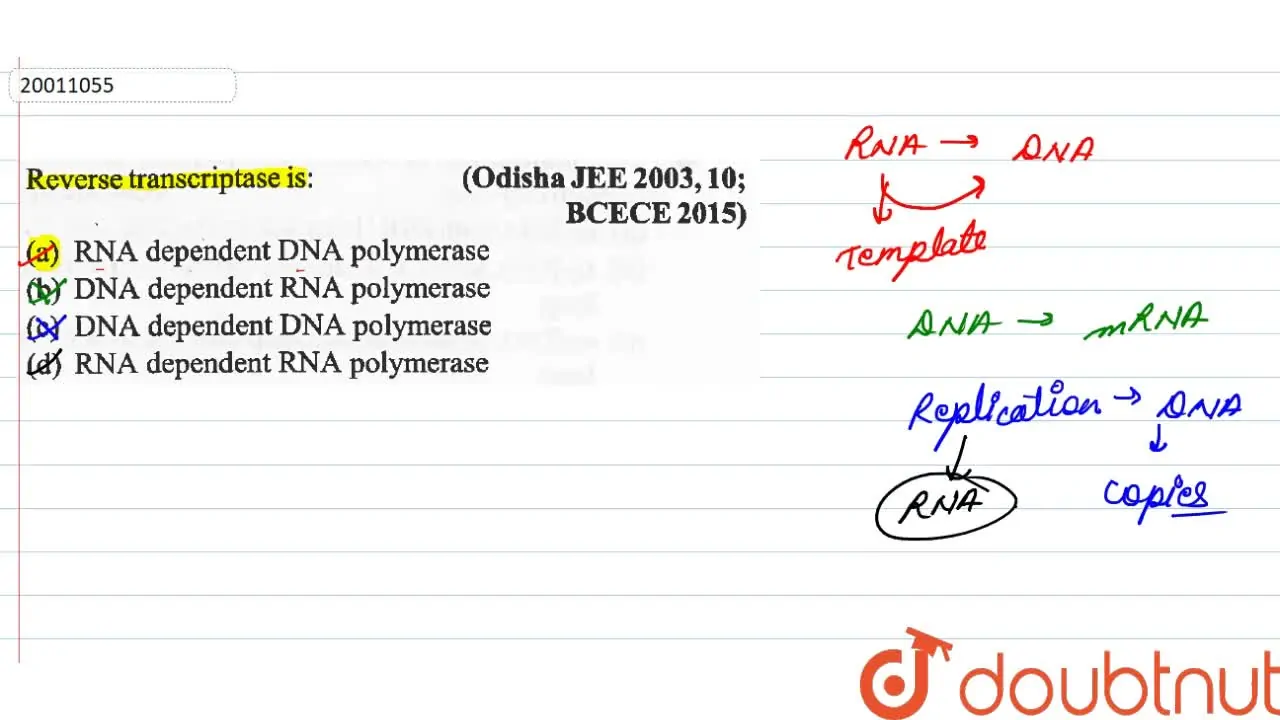 20011055
Reverse transcriptase is: (Odisha JEE 2003, 10;
BCECE 2015)
(a) RNA dependent DNA polymerase
(b) DNA dependent RNA polymerase
(c) DNA dependent DNA polymerase
(d) RNA dependent RNA polymerase
RNA → DNA
Template
DNA → mRNA
Replication → DNA
RNA
copies
doubtnut